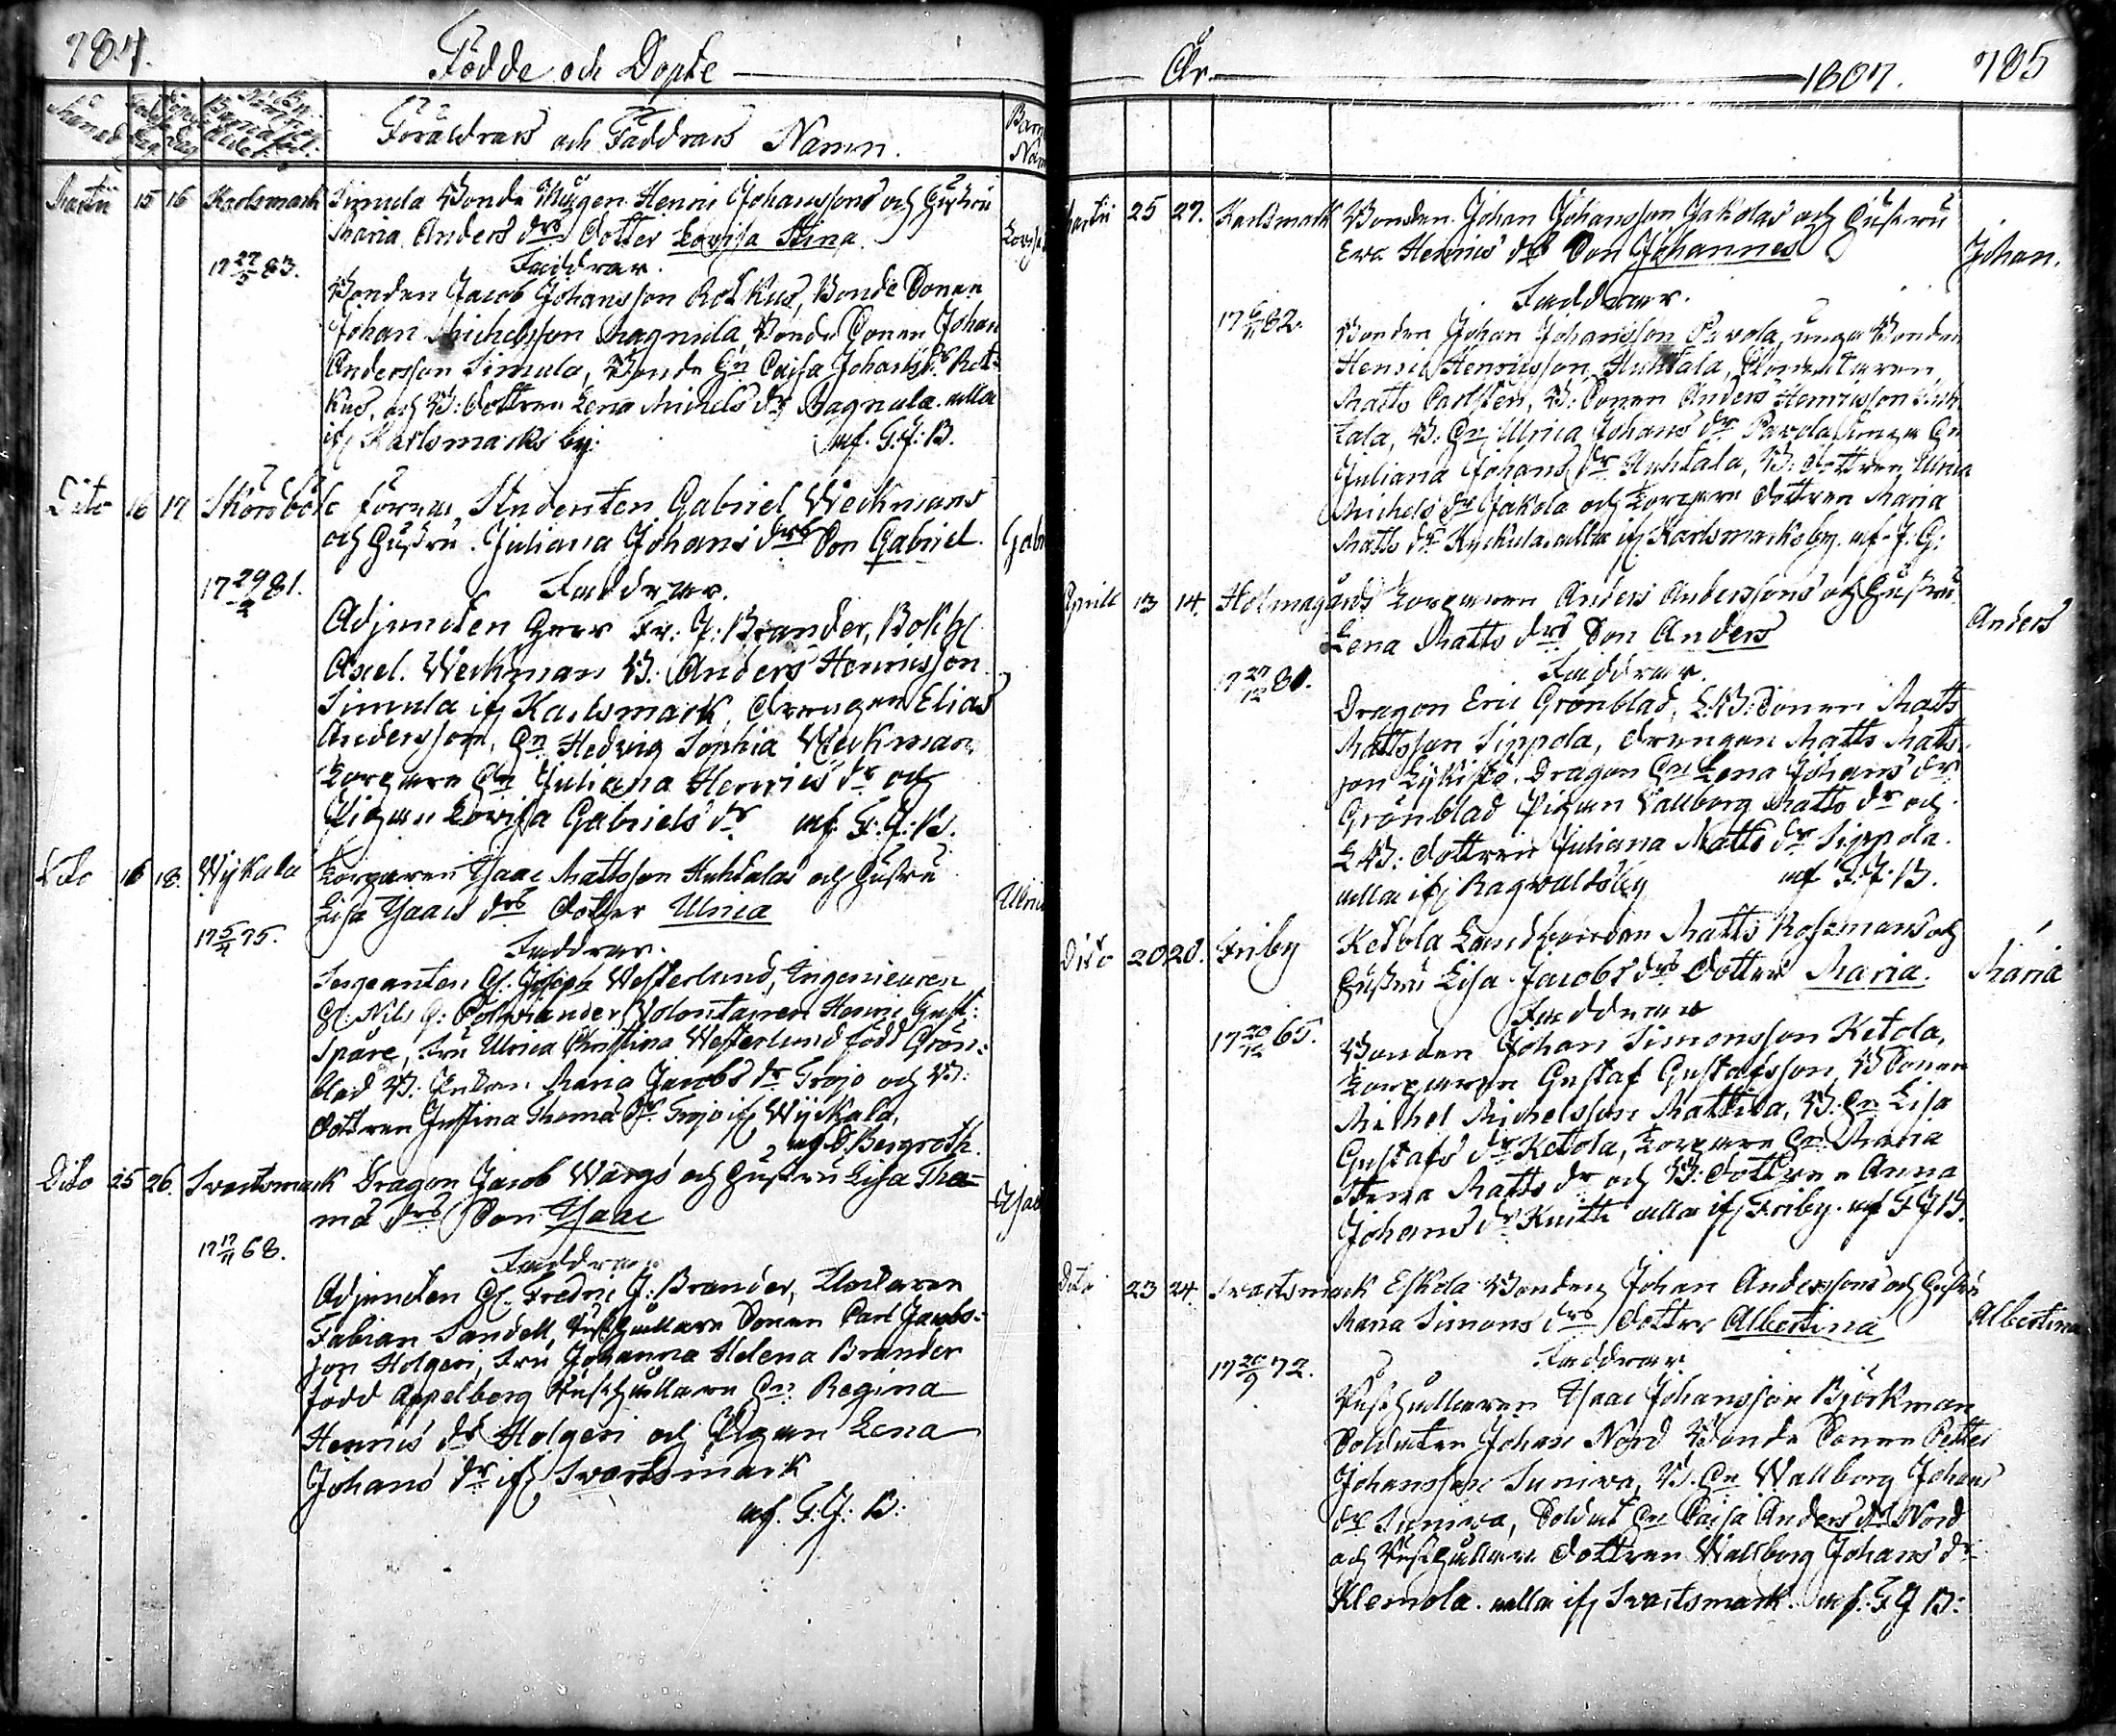 784.
Födde och Döpte
Månad
Födelse dag
Döpelse dag
Föräldrars och Faddrars Namn.
Barn Nam
Martii 15 16 Karlsmark Simula Bonde Mågen Henric Johanssons och Hustru
Maria Anders drs Dotter Lovisa Stina. Lovisa
17 27/5 83. Faddrar.
Bonden Jacob Johansson Rotkus, Bonde Sonen
Johan Michelsson Magnula, Bonde Sonen Johan
Andersson Simula, Bonde Hn Caisa Johans dr Rot=
kus, och B: dottren Lena Michels dr Magnula. alla
if Karlsmarks by. af. F. J: B.
Dito 16 17 Skörböle förra Studenten Gabriel Weckmans
och Hustru Juliana Johans drs Son Gabriel. Gabr
17 29/2 81. Faddrar.
Adjuncten Herr Fr: J: Brander, Bokh
Axel Weckman B: Anders Henricsson
Simula if Karlsmark, drengen Elias
Andersson, Hn Hedvig Sophia Weckman
Torpare Hn Juliana Henrics dr och
Pigan Lovisa Gabriels dr af. F: J: B.
Dito 16 18. Wijkala Torparen Isaac Mattsson Huhtalas och Hustru
Lisa Isaacs drs dotter Ulrica Ulric
17 5/4 75. Faddrar.
Sergeanten H. Joseph Westerlund, Ingenieuren
H: Nils G: Polviander, Volontairen Henric Gust:
Spåre, Fru Ulrica Christina Westerlund född Grön:
blad B: Enkan Maria Jacobs dr Trojo och B:
dottren Justina Thomas dr Trojo if Wijkala,
af D. Bergroth.
Dito 25 26. Svartsmark Dragon Jacob Wargs och Hustru Lisa Tho=
mas drs Son Isaac Isaa
17 17/11 68. Faddrar
Adjuncten H. Fredric J: Brander,
Fabian Sandell, Sonen Carl Jacobs=
son Holgeri, Fru Johanna Helena Brander
född Appelberg Hn Regina
Henrics dr Holgeri och Pigan Lena
Johans dr if Svartsmark
af. F. J: B:
År 1807. 785
Martii 25 27. Karlsmark Bonden Johan Johansson Jakolas och Hustru
Eva Henrics drs Son Johannes Johan.
Faddrar.
17 6/11 82. Bonden Johan Johansson Pavola, unga Bonden
Henric Henricsson Huhtala,
Matts Carlsten, B: Sonen Anders Henricsson Huh
tala, B: Hn Ulrica Johans dr Pavola, unga Hn
Juliana Johans dr Huhtala, B: dottren Ulrica
Michels dr Jakola och Torpare dottren Maria
Matts dr alla if Karlsmarks by. af. J. G:
Aprill 13 14. Holmagårds Torparen Anders Anderssons och Hustru
Lena Matts drs Son Anders Anders
17 27/12 80. Faddrar.
Dragon Eric Grönblad, L:B: Sonen Matts
Mattsson Sippola, drengen Matts Matts=
son Dragon Hn Lena Johans dr
Grönblad Pigan Vallborg Matts dr och
L B: dottren Juliana Matts dr Sippola.
alla if Ragvaldsby af F. J: B.
Dito 20 20. Friby Ketola Landbonden Matts Rosemans och
Hustru Lisa Jacobs drs dotter Maria. Maria
Faddrar
17 20/12 65. Bonden Johan Simonsson Ketola,
Torparen Gustaf Gustafsson, B Sonen
Michel Michelsson Mattila, B: Hn Lisa
Gustafs dr Ketola, Torpare Hn Maria
Stina Matts dr och B: dottren Anna
Johans dr Knith alla if Friby. af F J B.
Dito 23 24 Svartsmark Eskola Bonden Johan Anderssons och Hustru
Maria Simons drs dotter Albertina Albertina
17 20/9 72. Faddrar
Isaac Johansson Björkman
Soldaten Johan Nord Bonde Sonen Petter
Johansson Suniva, B. Hn Wallborg Johans
dr Suniva, Soldat Hn Caisa Anders dr Nord
och dottren Wallborg Johans dr
Klemola. alla if Svartsmark. af: F J B: